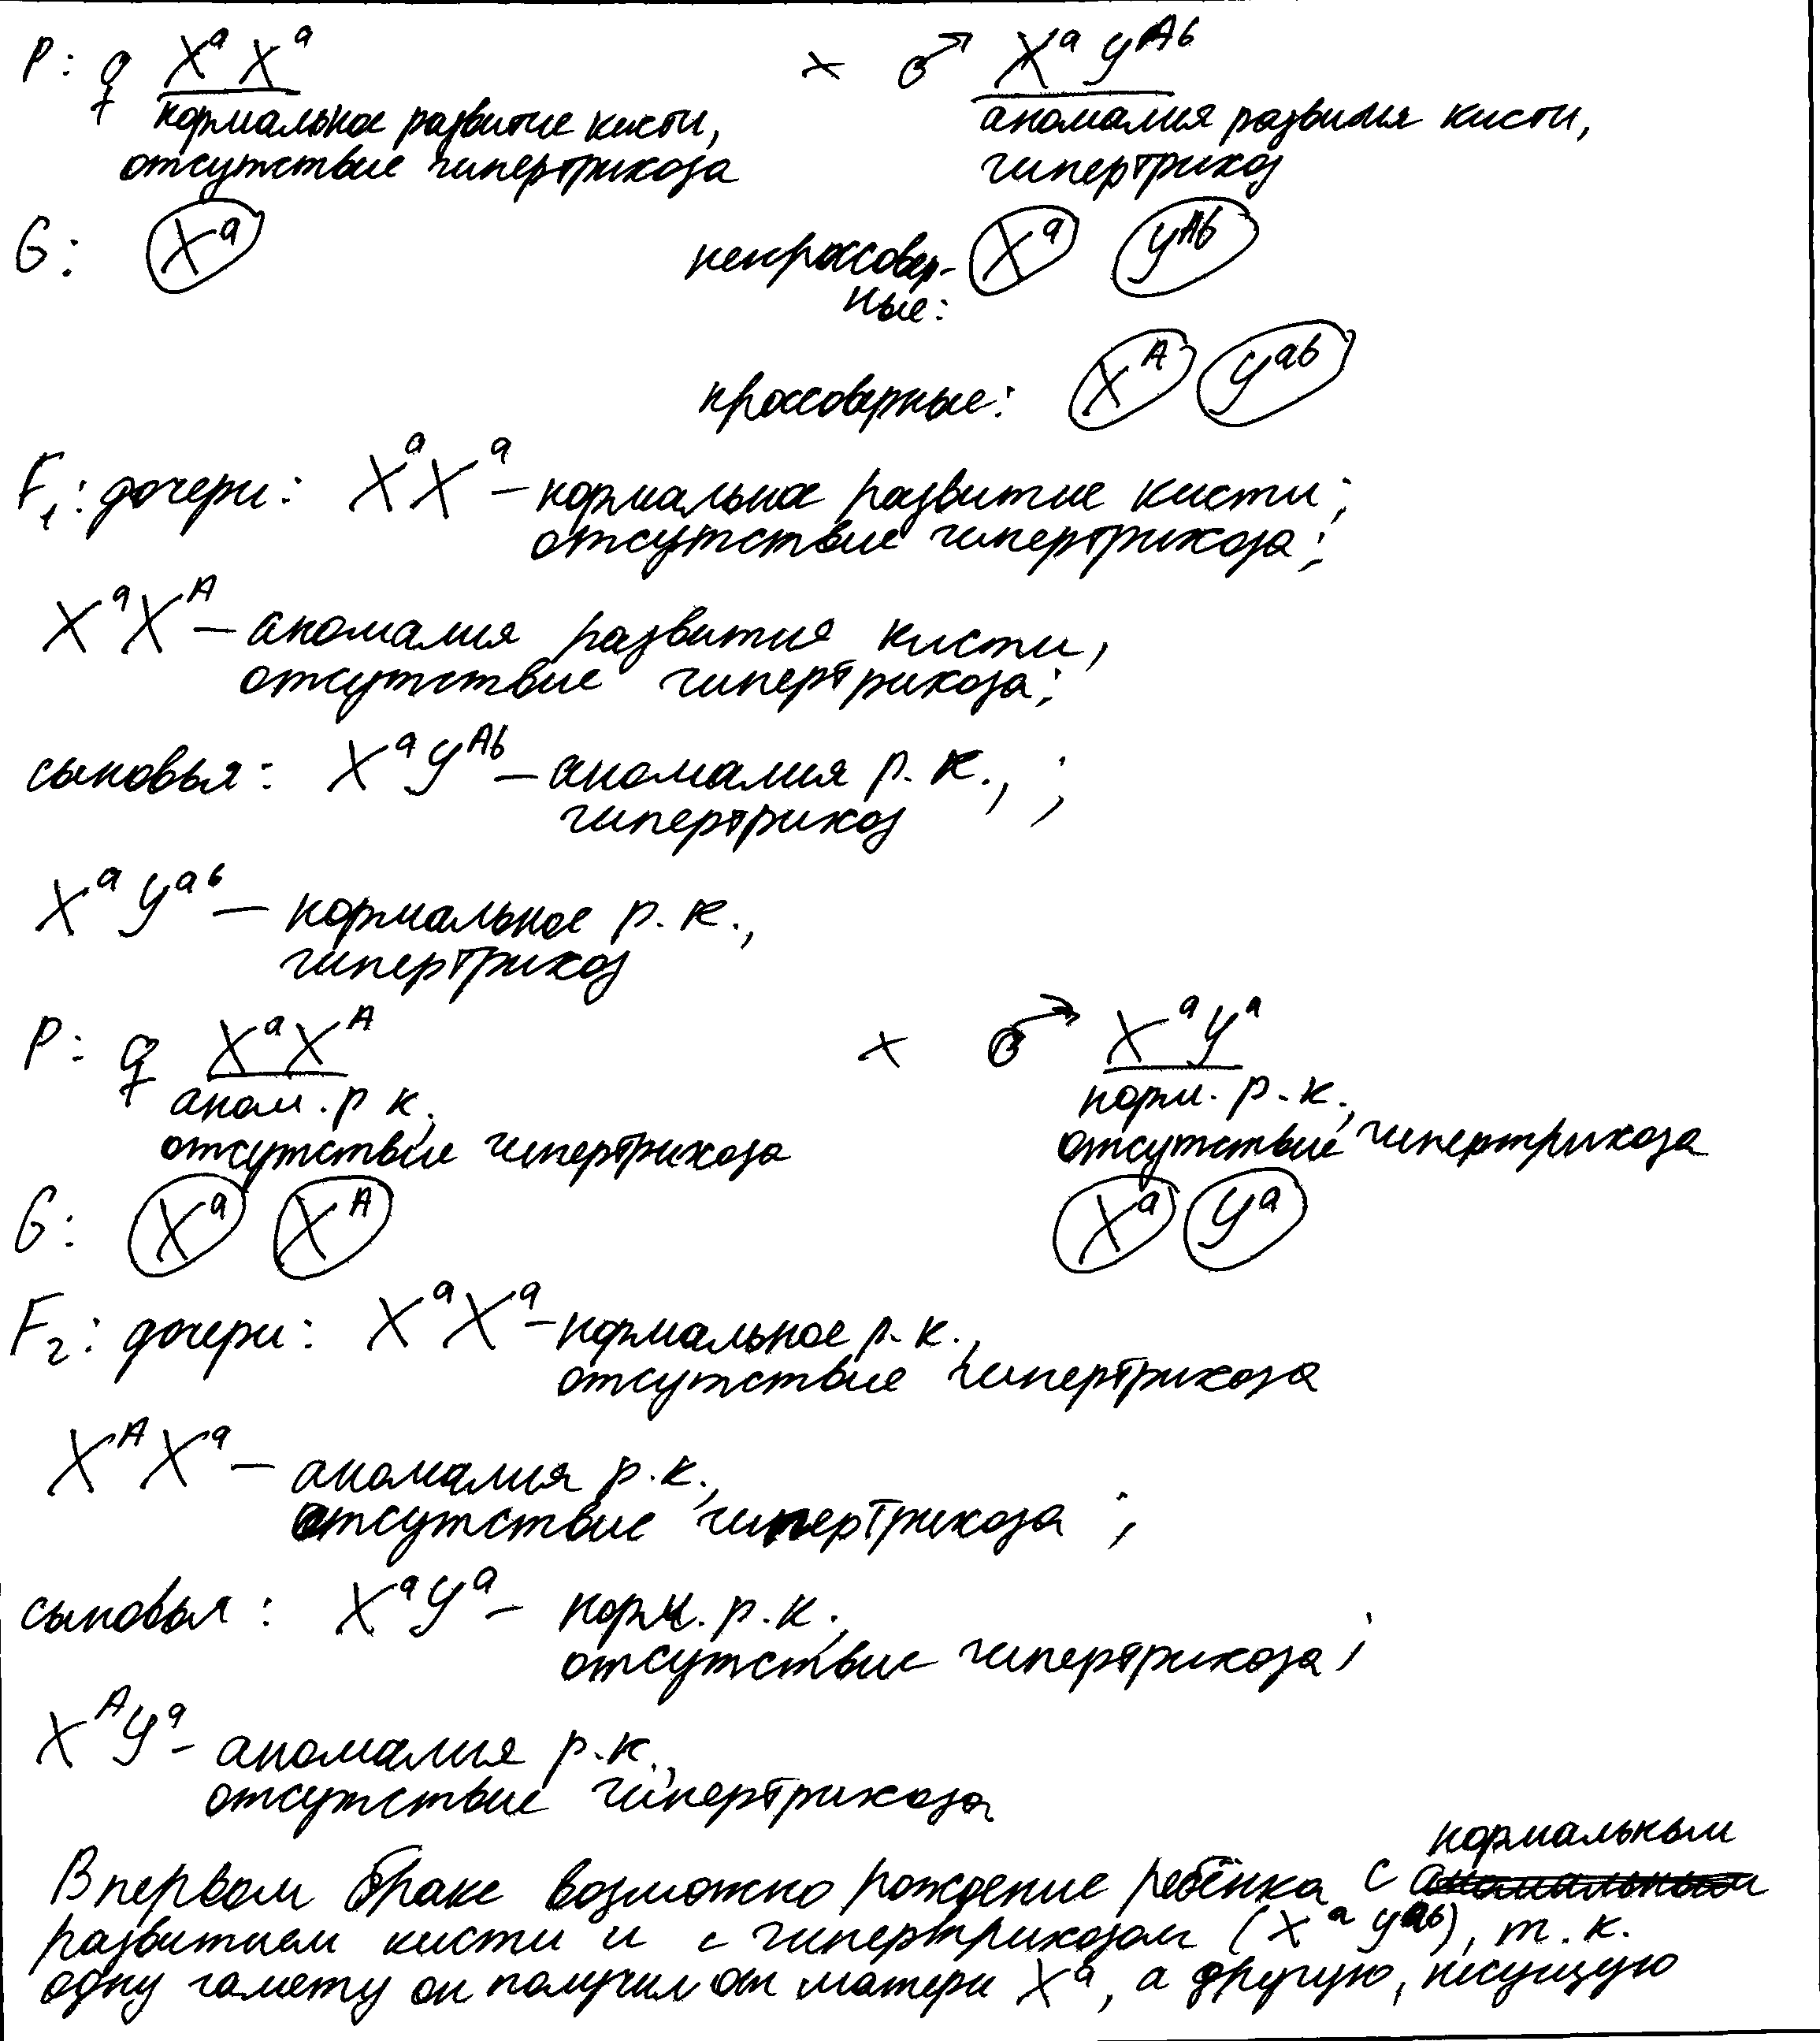 P: ♀ XᵃXᵃ × ♂ XᵃYᴬᵇ
нормальное развитие кисти, аномалия развития кисти,
отсутствие гипертрихоза гипертрихоз
G: Xᵃ некроссовер- Xᵃ Yᴬᵇ
ные:
кроссоверные: Xᴬ Yᵃᵇ
F₁: дочери: XᵃXᵃ – нормальное развитие кисти;
отсутствие гипертрихоза;
XᵃXᴬ – аномалия развития кисти,
отсутствие гипертрихоза;
сыновья: XᵃYᴬᵇ – аномалия р. к., ;
гипертрихоз
XᵃYᵃᵇ – нормальное р. к.,
гипертрихоз
P: ♀ XᵃXᴬ × ♂ XᵃYᵃ
аном. р к, норм. р. к.,
отсутствие гипертрихоза отсутствие гипертрихоза
G: Xᵃ Xᴬ Xᵃ Yᵃ
F₂: дочери: XᵃXᵃ – нормальное р. к.,
отсутствие гипертрихоза
XᴬXᵃ – аномалия р. к.,
отсутствие гипертрихоза ;
сыновья: XᵃYᵃ – норм. р. к.,
отсутствие гипертрихоза;
XᴬYᵃ – аномалия р. к.,
отсутствие гипертрихоза
нормальным
В первом браке возможно рождение ребёнка с аномальным
развитием кисти и с гипертрихозом (XᵃYᵃᵇ), т. к.
одну гамету он получил от матери Xᵃ, а другую, несущую